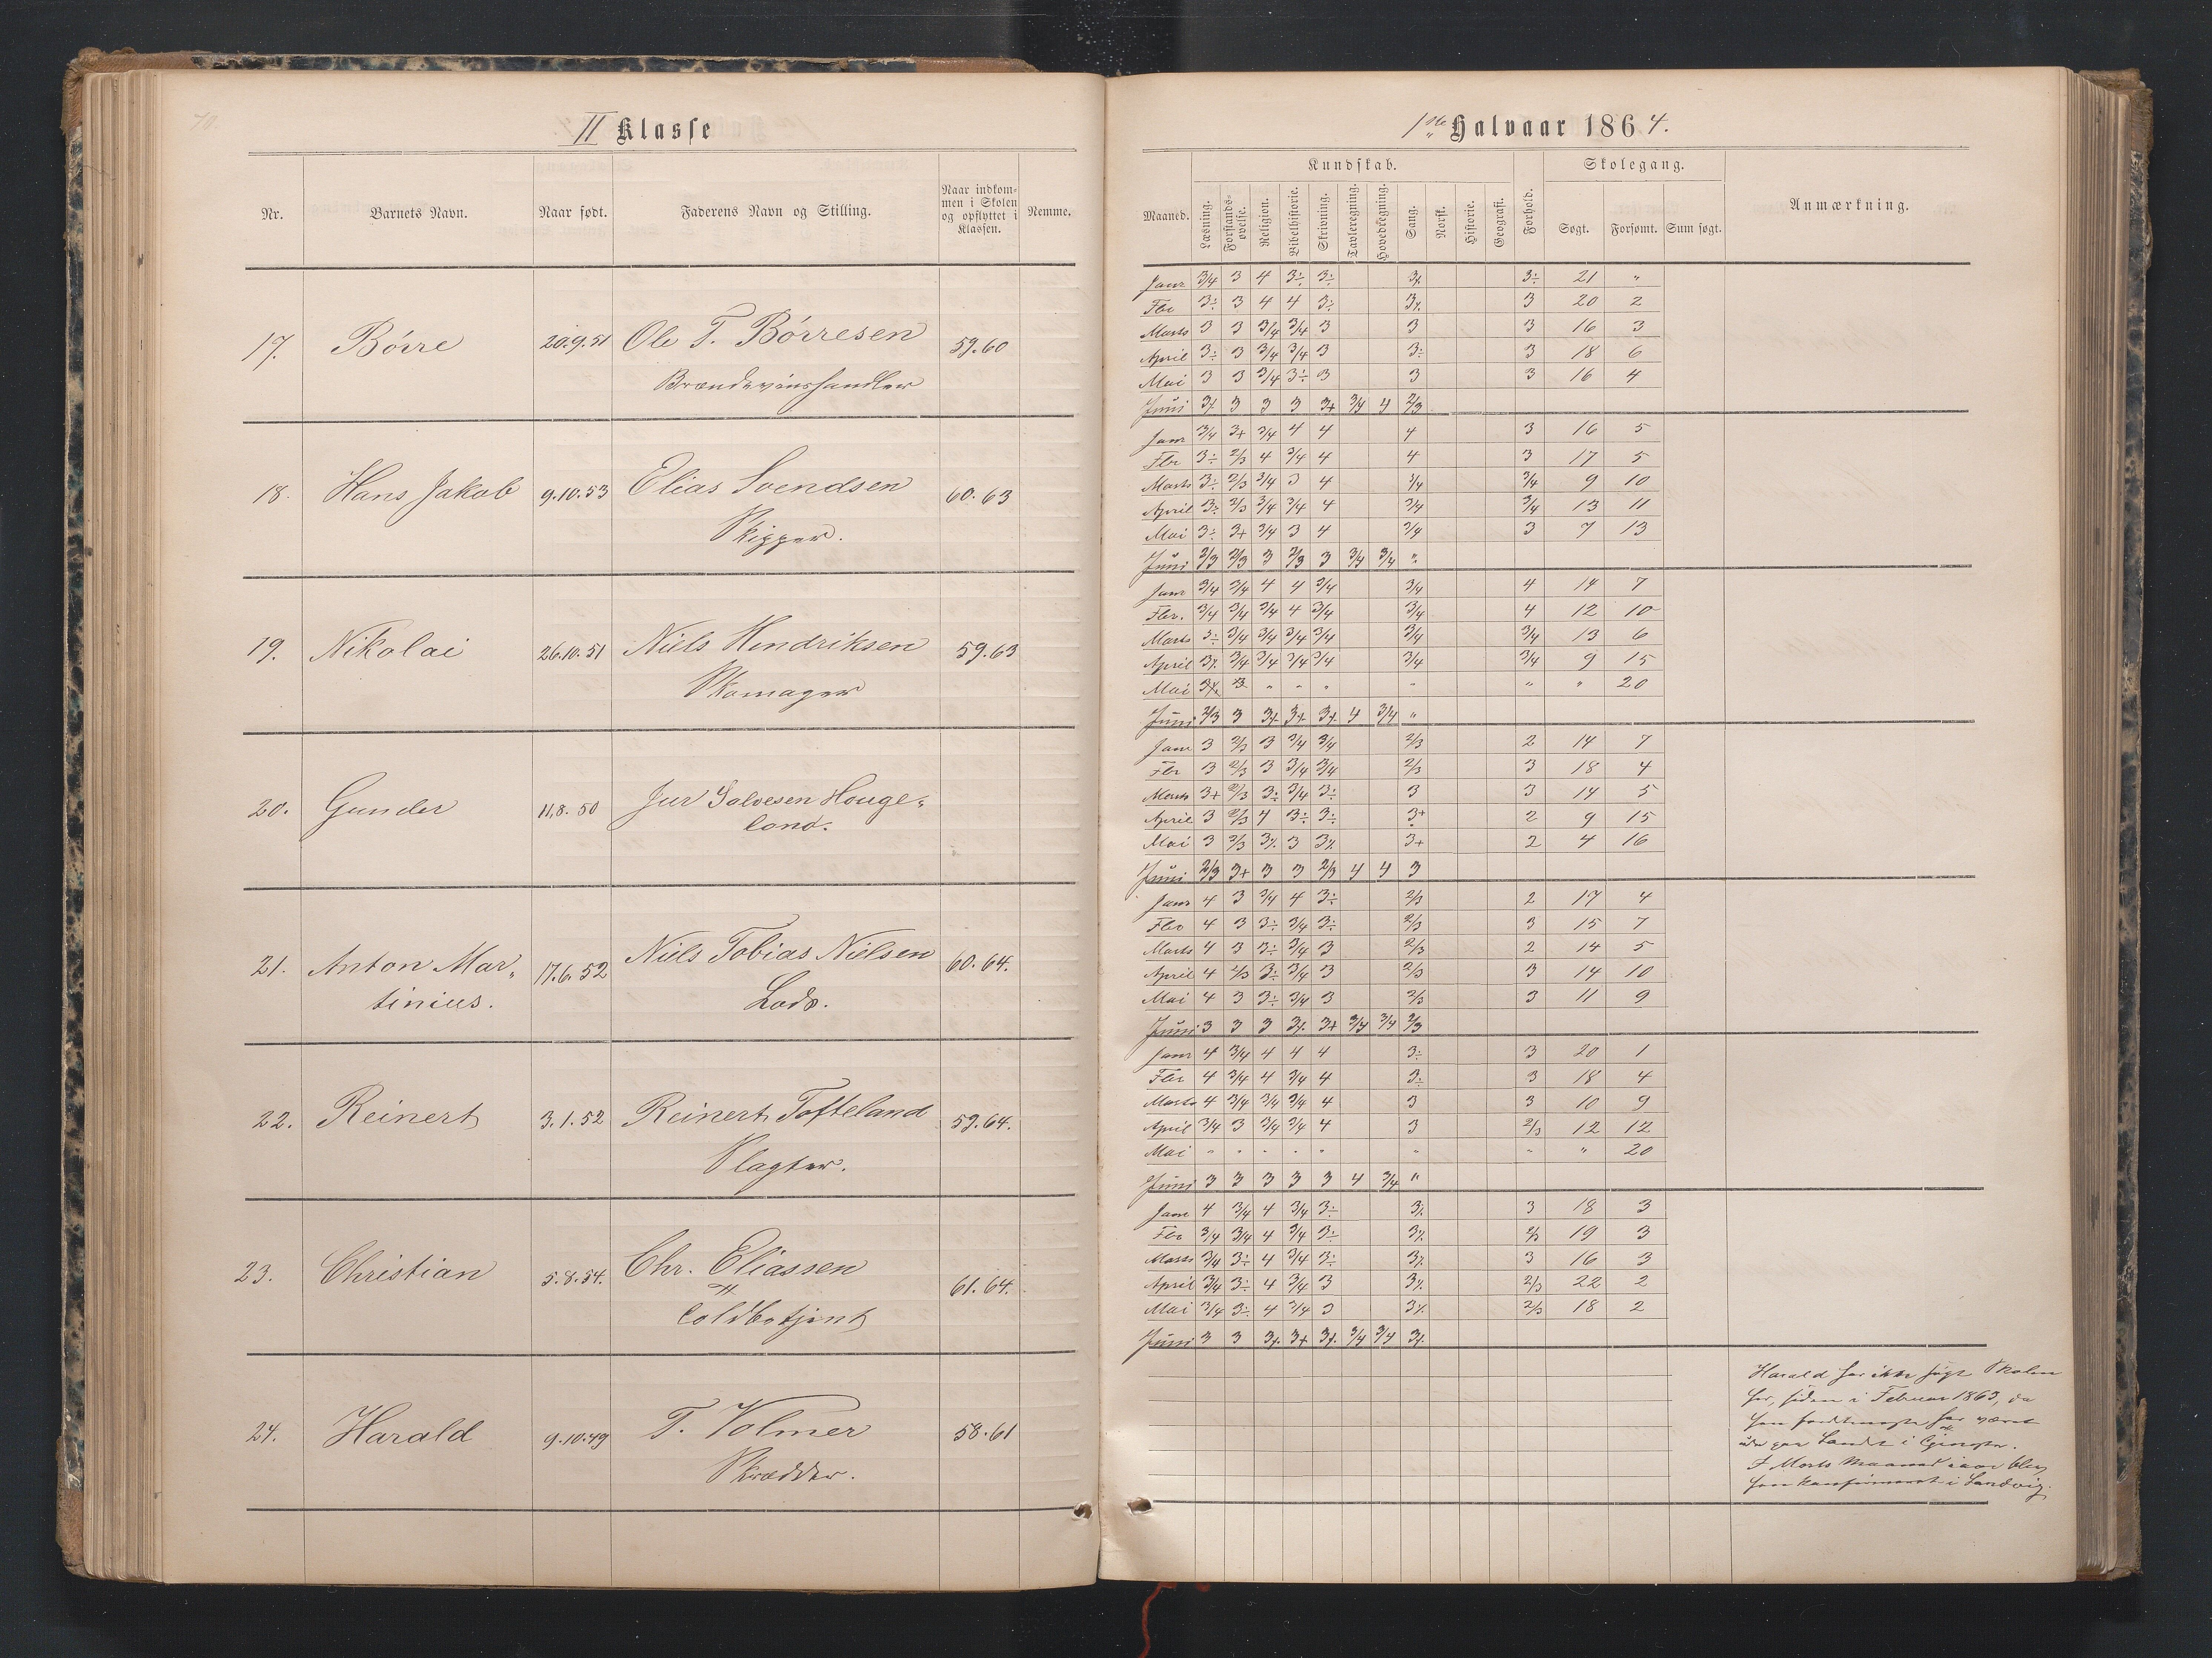 70.
II Klasse
Nr. Barnets Navn. Naar født. Faderens Navn og Stilling. Naar indkommen i Skolen og opflyttet i Klassen. Nemme.
17. Börre 20.9.51 Ole T. Börresen 59.60
Brændevinshandler
18. Hans Jakob 9.10.53 Elias Svendsen 60.63
Skipper.
19. Nikolai 26.10.51 Niels Hendriksen 59.63
Skomager
20. Gunder 11.8.50 Jur Salvesen Houge-
land.
21. Anton Mar- 17.6.52 Niels Tobias Nielsen 60.64.
tinius. Lods.
22. Reinert 3.1.52 Reinert Tofteland 59.64.
Slagter.
23. Christian 5.8.54. Chr. Eliassen 61.64.
Toldbetjent
24. Harald 9.10.49 T. Volmer 58.61
Skrædder.
1ste Halvaar 1864.
Maaned. Kundskab. Forhold. Skolegang. Anmærkning.
Læsning. Forstandsøvelse. Religion. Bibelhistorie. Skrivning. Tavleregning. Hovedregning. Sang. Norsk. Historie. Geografi. Søgt. Forsømt. Sum søgt.
Janr 3/4 3 4 3÷ 3÷ 3÷ 21 "
Fbr 3÷ 3 4 4 3÷ 3 20 2
Marts 3 3 3/4 3/4 3 3 3 16 3
April 3÷ 3 3/4 3/4 3 3÷ 3 18 6
Mai 3 3 3/4 3÷ 3 3 3 16 4
Juni 3 3 3 3+ 3/4 4 2/3
Janr 3/4 3+ 3/4 4 4 4 3 16 5
Fbr 3÷ 2/3 4 3/4 4 4 3 17 5
Marts 3÷ 2/3 3/4 3 4 3/4 3/4 9 10
April 3÷ 2/3 3/4 3/4 4 3/4 3/4 13 11
Mai 3÷ 3+ 3/4 3 4 3/4 3 7 13
Juni 2/3 2/3 3 2/3 3 3/4 3/4 "
Janr 3/4 3/4 4 4 3/4 3/4 4 14 7
Fbr. 3/4 3/4 3/4 4 3/4 3/4 4 12 10
Marts 3÷ 3/4 3/4 3/4 3/4 3/4 3/4 13 6
April 3÷ 3/4 3/4 3/4 3/4 3/4 3/4 9 15
Mai 3 " " " " " " 20
Juni 2/3 3 4 3/4 "
Janr 3 2/3 3 3/4 3/4 2/3 2 14 7
Fbr 3 2/3 3 3/4 3/4 2/3 3 18 4
Marts 3+ 2/3 3÷ 3/4 3÷ 3 3 14 5
April 3 2/3 4 3÷ 3÷ 3+ 2 9 15
Mai 3 2/3 3÷ 3 3÷ 3+ 2 4 16
Juni 2/3 3+ 3 3 2/3 4 4 3
Janr 4 3 3/4 4 3÷ 2/3 2 17 4
Fbr 4 3 3÷ 3/4 3÷ 2/3 3 15 7
Marts 4 3 3÷ 3/4 3 2/3 2 14 5
April 4 2/3 3÷ 3/4 3 2/3 3 14 10
Mai 4 3 3÷ 3/4 3 2/3 3 11 9
Juni 3 3 3 3÷ 3+ 3/4 3/4 2/3
Janr 4 3/4 4 4 4 3÷ 3 20 1
Fbr 4 3/4 4 3/4 4 3÷ 3 18 4
Marts 4 3/4 3/4 3/4 4 3 3 10 9
April 3/4 3 3/4 3/4 4 3 2/3 12 12
Mai " " " " " " " " 20
Juni 3 3 3 3 3 4 3/4 "
Janr 4 3/4 4 3/4 3÷ 3÷ 3 18 3
Fbr 3/4 3/4 4 3/4 3÷ 3÷ 2/3 19 3
Marts 3/4 3÷ 4 3/4 3÷ 3÷ 3 16 3
April 3/4 3÷ 4 3/4 3 3÷ 2/3 22 2
Mai 3/4 3÷ 4 3/4 3 3÷ 2/3 18 2
Juni 3 3 3÷ 3+ 3÷ 3/4 3/4 3÷
Harald har ikke søgt Skolen
her, siden i Februar 1863, da
han har været
ude paa Landet i
I Marts Maaned iaar blev
han konfirmeret i Landvig.